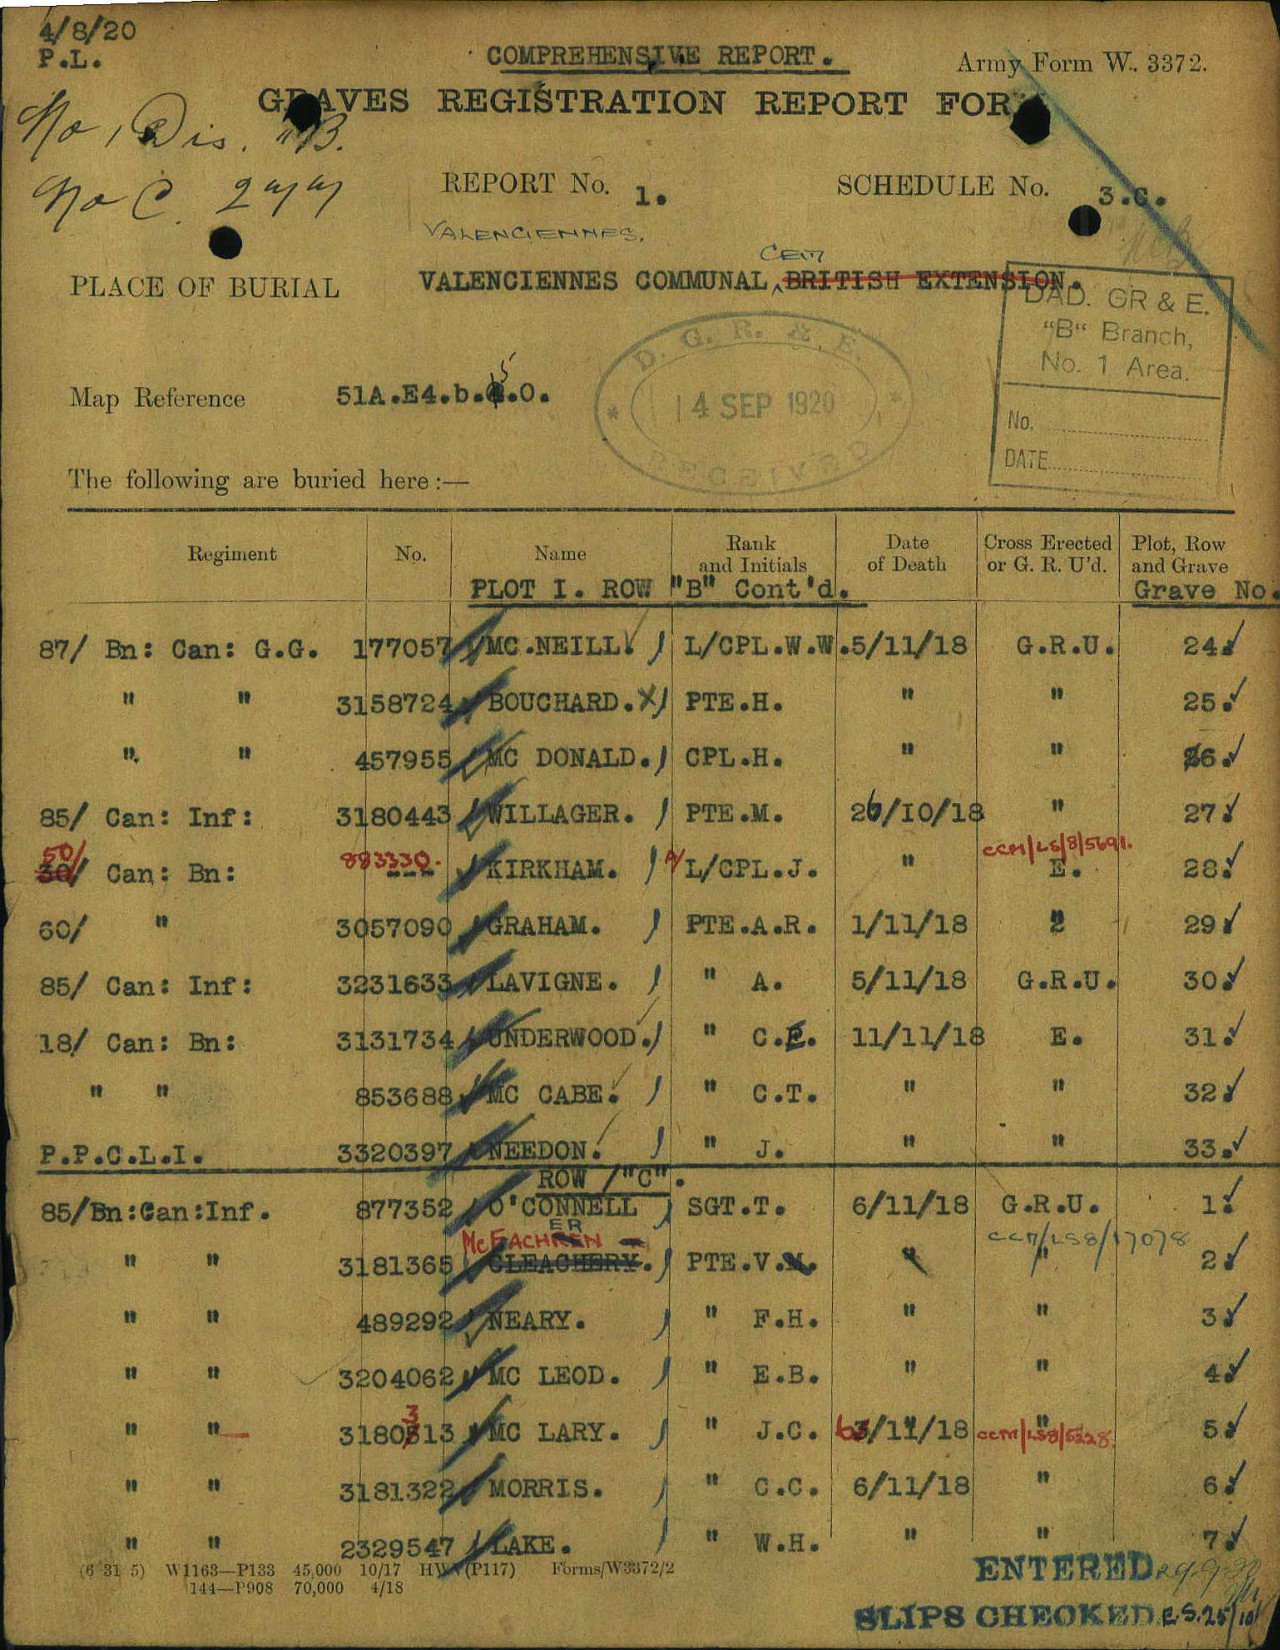 4/8/20
P.L.
COMPREHENSIVE REPORT.
Army Form W. 3372.
GRAVES REGISTRATION REPORT FORM
No 1 Dis. "B.
No C.
REPORT No. 1.
SCHEDULE No. 3.C.
VALENCIENNES.
CEM
PLACE OF BURIAL VALENCIENNES COMMUNAL BRITISH EXTENSION.
DAD. GR & E.
"B" Branch,
No. 1 Area.
No.
DATE
D. G. R. & E.
14 SEP 1920
RECEIVED
5
Map Reference 51A.E4.b. .0.
The following are buried here :—
Regiment No. Name Rank and Initials Date of Death Cross Erected or G. R. U'd. Plot, Row and Grave
PLOT I. ROW "B" Cont'd. Grave No.
87/ Bn: Can: G.G. 177057 MC.NEILL L/CPL.W.W. 5/11/18 G.R.U. 24.
" " 3158724 BOUCHARD. X PTE.H. " " 25.
" " 457955 MC DONALD. CPL.H. " " 26.
85/ Can: Inf: 3180443 WILLAGER. PTE.M. 26/10/18 " 27.
50/ 883330. A/ CCM/LS/8/5691.
30/ Can: Bn: KIRKHAM. L/CPL.J. " E. 28.
60/ " 3057090 GRAHAM. PTE.A.R. 1/11/18 " 29.
85/ Can: Inf: 3231633 LAVIGNE. " A. 5/11/18 G.R.U. 30.
18/ Can: Bn: 3131734 UNDERWOOD. " C.E. 11/11/18 E. 31.
" " 853688 MC CABE. " C.T. " " 32.
P.P.C.L.I. 3320397 NEEDON. " J. " " 33.
ROW /"C".
85/Bn:Can:Inf. 877352 O'CONNELL SGT.T. 6/11/18 G.R.U. 1.
McEACHREN ER CCM/LS8/17078
" " 3181365 CLEACHERY. PTE.V.M. " " 2.
" " 489292 NEARY. " F.H. " " 3.
" " 3204062 MC LEOD. " E.B. " " 4.
3
" " 3180513 MC LARY. " J.C. 63/11/18 " CCM/LS8/5228 5.
" " 3181322 MORRIS. " C.C. 6/11/18 " 6.
" " 2329547 LAKE. " W.H. " " 7.
(6 31 5) W1163—P133 45,000 10/17 HWV(P117) Forms/W3372/2
144—P908 70,000 4/18
ENTERED 29.9.20
SLIPS CHECKED E.S. 25/10